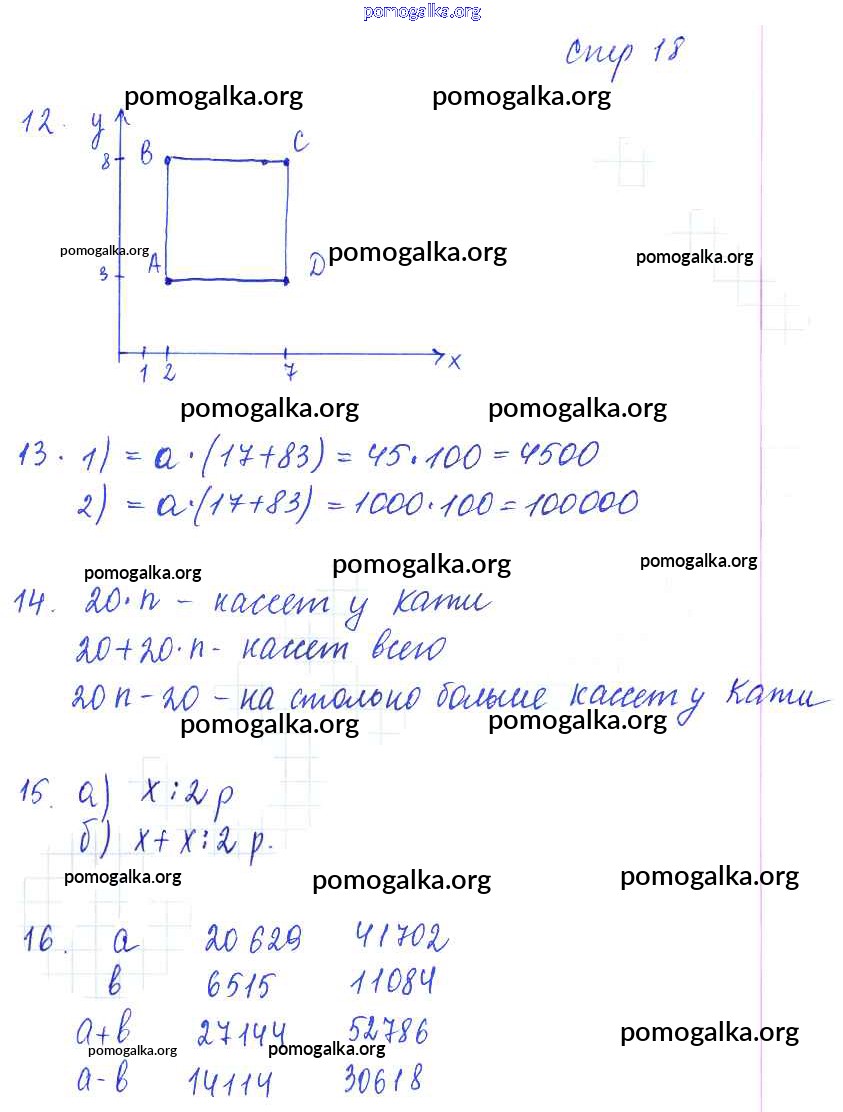 pomogalka.org
стр 18
pomogalka.org pomogalka.org
12. y
8 B C
pomogalka.org pomogalka.org pomogalka.org
3 A D
1 2 7 x
pomogalka.org pomogalka.org
13. 1) = a·(17+83) = 45·100 = 4500
2) = a·(17+83) = 1000·100 = 100000
pomogalka.org pomogalka.org pomogalka.org
14. 20·n - кассет у Кати
20+20·n - кассет всего
20n - 20 - на столько больше кассет у Кати
pomogalka.org pomogalka.org
15. а) x:2 р
б) x + x:2 р.
pomogalka.org pomogalka.org pomogalka.org
16. a 20629 41702
в 6515 11084
a+в 27144 52786
pomogalka.org pomogalka.org pomogalka.org
a-в 14114 30618